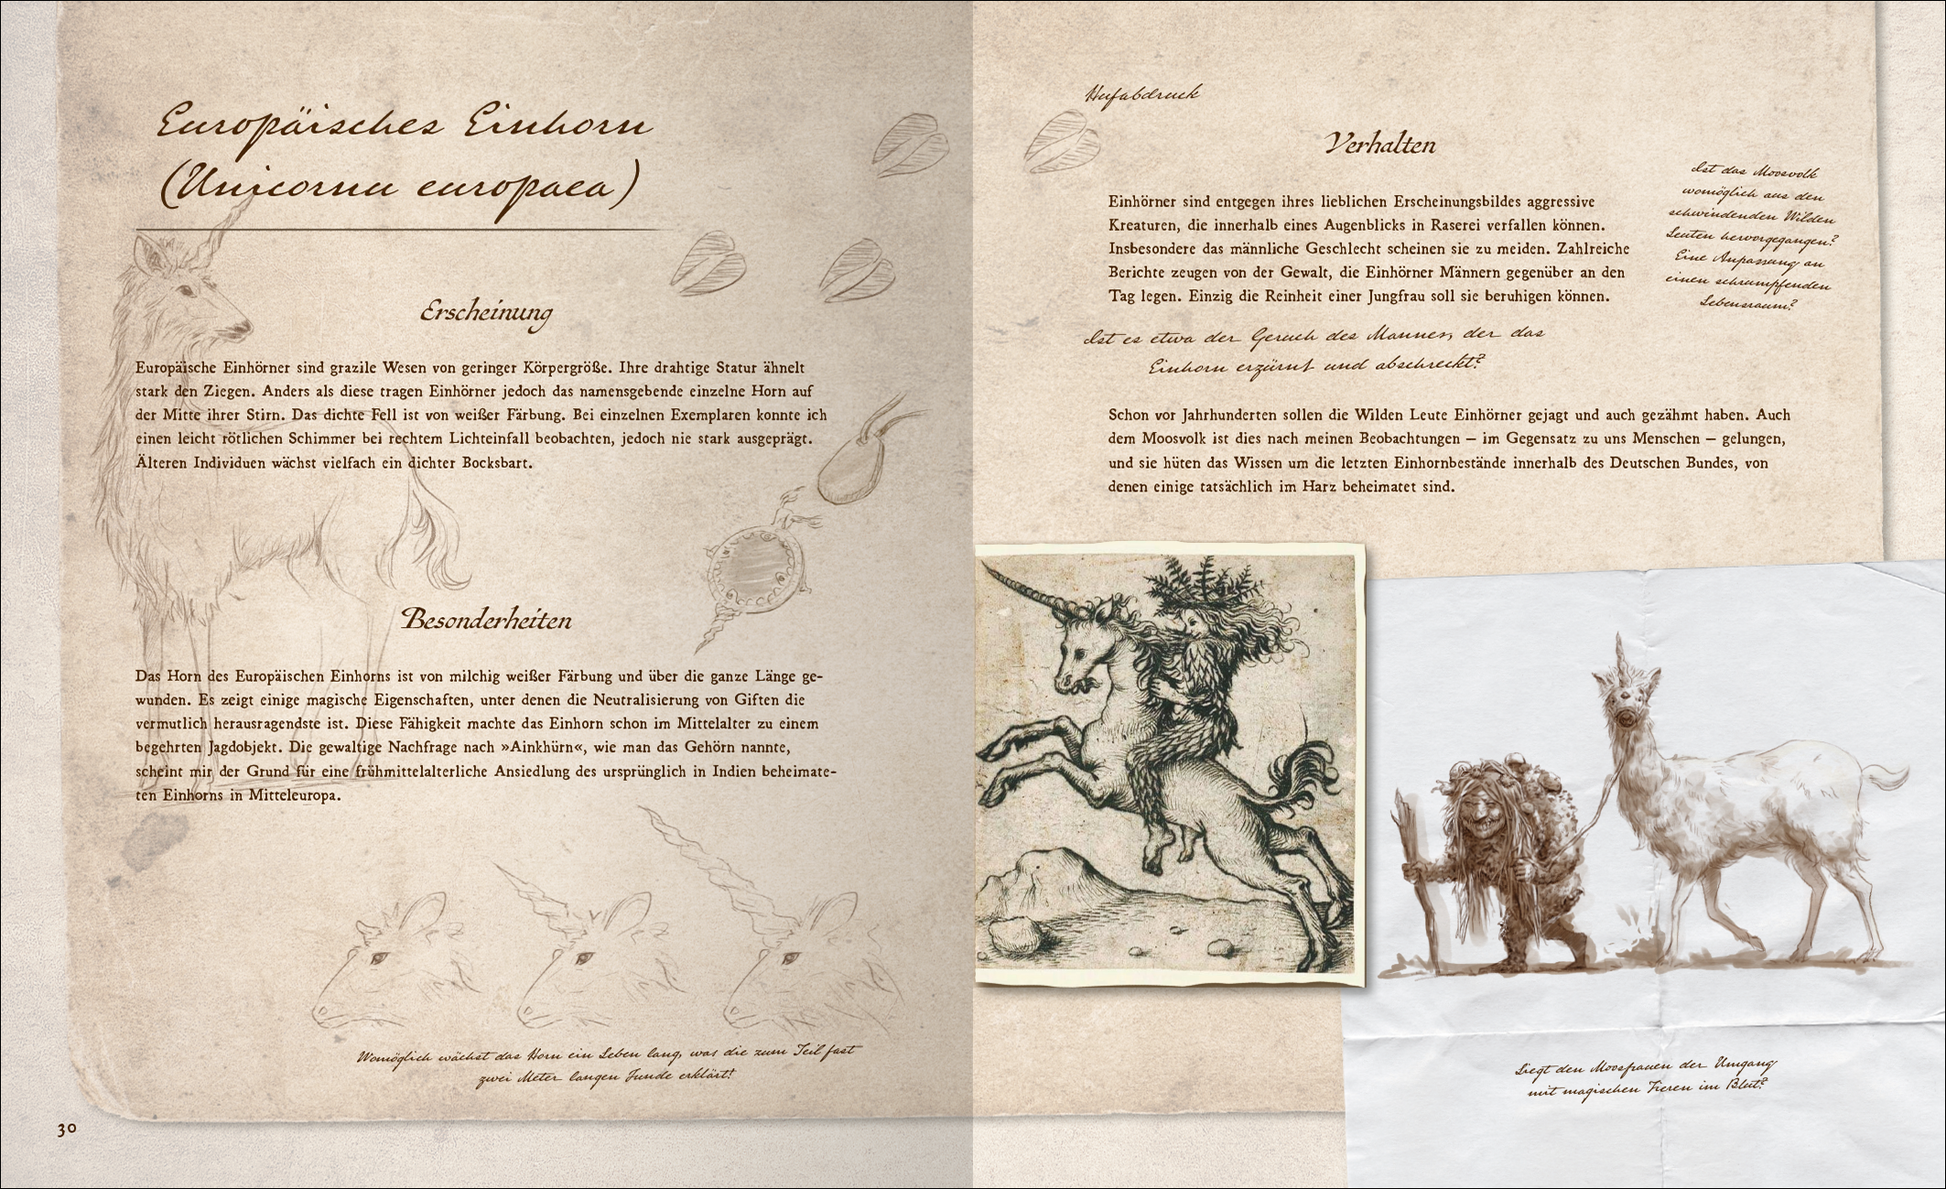 Europäisches Einhorn
(Unicornu europaea)
Erscheinung
Europäische Einhörner sind grazile Wesen von geringer Körpergröße. Ihre drahtige Statur ähnelt
stark den Ziegen. Anders als diese tragen Einhörner jedoch das namensgebende einzelne Horn auf
der Mitte ihrer Stirn. Das dichte Fell ist von weißer Färbung. Bei einzelnen Exemplaren konnte ich
einen leicht rötlichen Schimmer bei rechtem Lichteinfall beobachten, jedoch nie stark ausgeprägt.
Älteren Individuen wächst vielfach ein dichter Bocksbart.
Besonderheiten
Das Horn des Europäischen Einhorns ist von milchig weißer Färbung und über die ganze Länge ge-
wunden. Es zeigt einige magische Eigenschaften, unter denen die Neutralisierung von Giften die
vermutlich herausragendste ist. Diese Fähigkeit machte das Einhorn schon im Mittelalter zu einem
begehrten Jagdobjekt. Die gewaltige Nachfrage nach »Ainkhürn«, wie man das Gehörn nannte,
scheint mir der Grund für eine frühmittelalterliche Ansiedlung des ursprünglich in Indien beheimate-
ten Einhorns in Mitteleuropa.
Womöglich wächst das Horn ein Leben lang, was die zum Teil fast
zwei Meter langen Funde erklärt!
30
Hufabdruck
Verhalten
Einhörner sind entgegen ihres lieblichen Erscheinungsbildes aggressive
Kreaturen, die innerhalb eines Augenblicks in Raserei verfallen können.
Insbesondere das männliche Geschlecht scheinen sie zu meiden. Zahlreiche
Berichte zeugen von der Gewalt, die Einhörner Männern gegenüber an den
Tag legen. Einzig die Reinheit einer Jungfrau soll sie beruhigen können.
Ist das Moosvolk
womöglich aus den
schwindenden Wilden
Leuten hervorgegangen?
Eine Anpassung an
einen schrumpfenden
Lebensraum?
Ist es etwa der Geruch des Mannes, der das
Einhorn erzürnt und abschreckt?
Schon vor Jahrhunderten sollen die Wilden Leute Einhörner gejagt und auch gezähmt haben. Auch
dem Moosvolk ist dies nach meinen Beobachtungen – im Gegensatz zu uns Menschen – gelungen,
und sie hüten das Wissen um die letzten Einhornbestände innerhalb des Deutschen Bundes, von
denen einige tatsächlich im Harz beheimatet sind.
Liegt den Moosfrauen der Umgang
mit magischen Tieren im Blut?